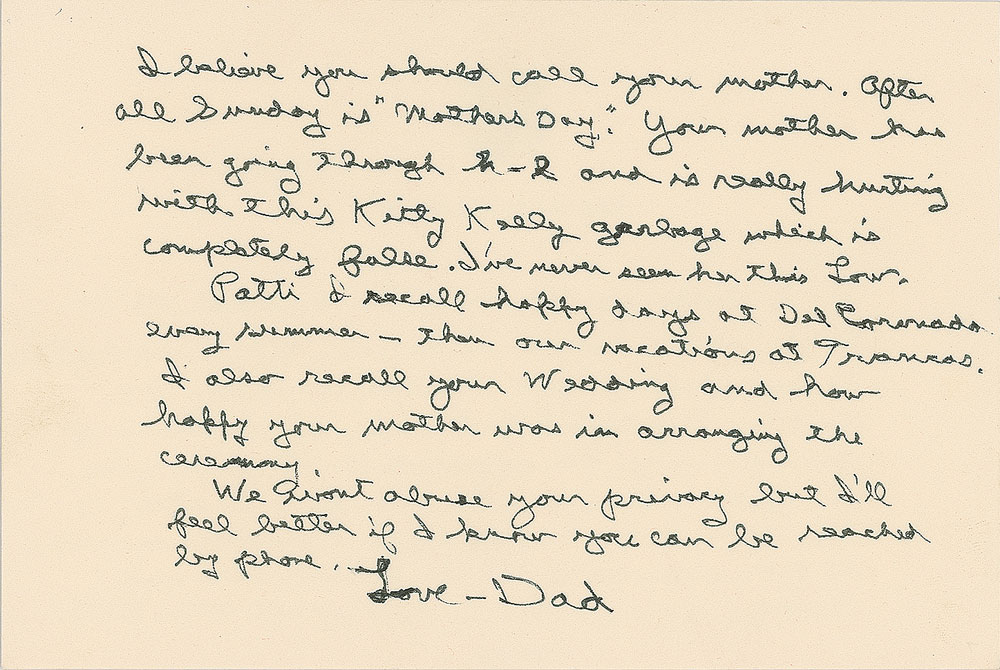 I believe you should call your mother. After
all Sunday is "Mothers Day." Your mother has
been going through h-l and is really hurting
with this Kitty Kelly garbage which is
completely false. I've never seen her this Low.
Patti I recall happy days at Del Coronado
every summer – then our vacations at Trancas.
I also recall your Wedding and how
happy your mother was in arranging the
ceremony.
We won't abuse your privacy but I'll
feel better if I know you can be reached
by phone.. Love – Dad